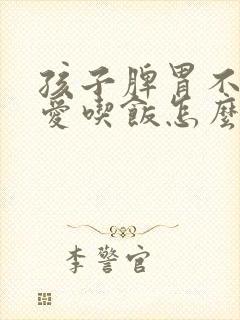 孩子脾胃不
愛喫飯怎麼
李警官